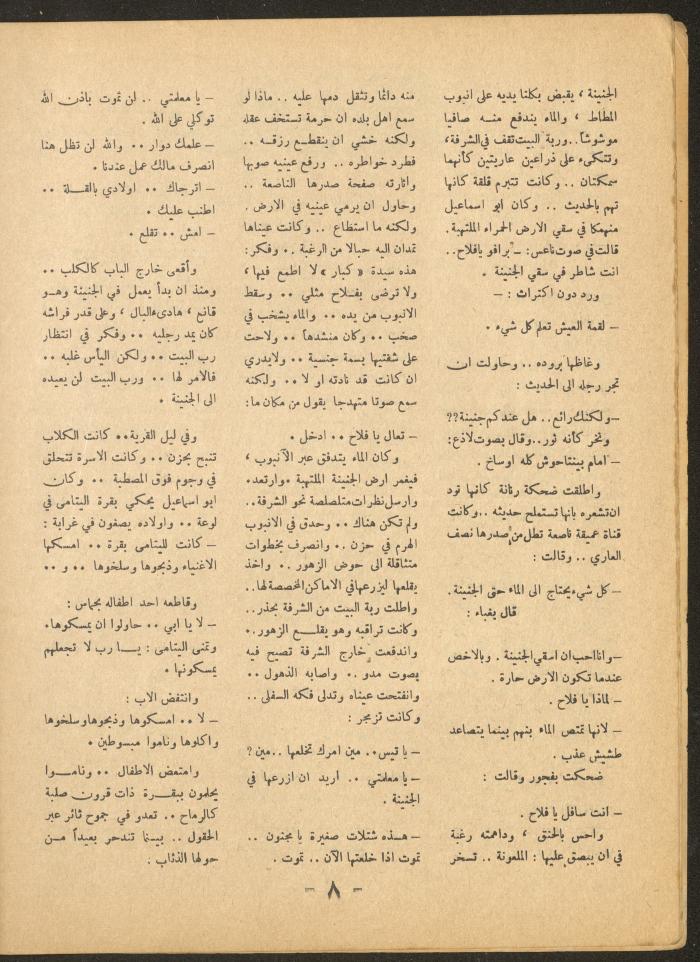 الجنينة ، يقبض بكلتا يديه على انبوب
المطاط ، والماء يندفع منه صافيا
موشوشاً.. وربة البيت تقف في الشرفة،
وتتكىء على ذراعين عاريتين كأنهما
سمكتان .. وكانت تتبرم قلقة كانها
تهم بالحديث .. وكان ابو اسماعيل
منهمكا في سقي الارض الحمراء الملتهبة.
قالت في صوت ناعس: ـ برافو يا فلاح..
انت شاطر في سقي الجنينة .
ورد دون اكتراث : ـ
ـ لقمة العيش تعلم كل شيء .
وغاظها بروده .. وحاولت ان
تجر رجله الى الحديث :
ـ ولكنك رائع.. هل عندكم جنينة ؟؟
ونخر كأنه ثور.. وقال بصوت لاذع:
ـ امام بيتنا حوش كله اوساخ .
واطلقت ضحكة رنانة كانها تود
ان تشعره بانها تستملح حديثه .. وكانت
قناة عميقة ناصعة تطل من صدرها نصف
العاري .. وقالت :
ـ كل شيء يحتاج الى الماء حتى الجنينة .
قال بغباء :
ـ وانا احب ان اسقي الجنينة . وبالاخص
عندما تكون الارض حارة .
ـ لماذا يا فلاح .
ـ لانها تمتص الماء بنهم بينما يتصاعد
طشيش عذب .
ضحكت بفجور وقالت :
ـ انت سافل يا فلاح .
واحس بالحنق ، وداهمته رغبة
في ان يبصق عليها : الملعونة .. تسخر
منه دائما وتثقل دمها عليه .. ماذا لو
سمع اهل بلده ان حرمة تستخف عقله
ولكنه خشي ان ينقطع رزقه ..
فطرد خواطره .. ورفع عينيه صوبها
واثارته صفحة صدرها الناصعة ..
وحاول ان يرمي عينيه في الارض .
ولكنه ما استطاع .. وكانت عيناها
تمدان اليه حبالا من الرغبة .. وفكر:
هذه سيدة « كبار » لا اطمع فيها ،
ولا ترضى بفلاح مثلي .. وسقط
الانبوب من يده .. والماء يشخب في
صخب .. وكان منشدها .. ولاحت
على شفتيها بسمة جنسية .. ولا يدري
ان كانت قد نادته او لا .. ولكنه
سمع صوتا متهدجا يقول من مكان ما:
ـ تعال يا فلاح .. ادخل .
وكان الماء يتدفق عبر الأنبوب ،
فيغمر ارض الجنينة الملتهبة . وارتعد.
وارسل نظرات متلصلصة نحو الشرفة..
ولم تكن هناك .. وحدق في الانبوب
الهرم في حزن .. وانصرف بخطوات
متثاقلة الى حوض الزهور .. واخذ
يقلعها ليزرعها في الاماكن المخصصة لها..
واطلت ربة البيت من الشرفة بحذر..
وكانت تراقبه وهو يقلع الزهور..
واندفعت خارج الشرفة تصيح فيه
بصوت مدو .. واصابه الذهول ..
وانفتحت عيناه وتدلى فكه السفلى ..
وكانت تزمجر :
ـ يا تيس .. مين امرك تخلعها .. مين ؟
ـ يا معلمتي .. اريد ان ازرعها في
الجنينة .
ـ هذه شتلات صغيرة يا مجنون ..
تموت اذا خلعتها الآن .. تموت .
ـ يا معلمتي .. لن تموت باذن الله
توكلي على الله .
ـ علمك دوار .. والله لن تظل هنا
انصرف مالك عمل عندنا .
ـ اترجاك .. اولادي بالقلة ..
اطنب عليك .
ـ امش .. تقلع .
وأقعى خارج الباب كالكلب ..
ومنذ ان بدأ يعمل في الجنينة وهو
قانع ، هادىء البال ، وعلى قدر فراشه
كان يمد رجليه .. وفكر في انتظار
رب البيت .. ولكن اليأس غلبه ..
فالامر لها .. ورب البيت لن يعيده
الى الجنينة .
وفي ليل القرية.. كانت الكلاب
تنبح بحزن .. وكانت الاسرة تتحلق
في وجوم فوق المصطبة .. وكان
ابو اسماعيل يحكي بقرة اليتامى في
لوعة .. واولاده يصغون في غرابة :
ـ كانت لليتامى بقرة .. امسكها
الاغنياء وذبحوها وسلخوها .. و ..
وقاطعه احد اطفاله بحماس :
ـ لا يا ابي .. حاولوا ان يمسكوها.
وتمنى اليتامى : يا رب لا تجعلهم
يمسكونها .
وانتفض الاب :
ـ لا .. امسكوها وذبحوها وسلخوها
واكلوها وناموا مبسوطين .
وامتعض الاطفال .. وناموا
يحلمون ببقرة ذات قرون صلبة
كالرماح .. تعدو في جموح ثائر عبر
الحقول .. بينما تندحر بعيداً من
حولها الذئاب .
ـ ٨ ـ